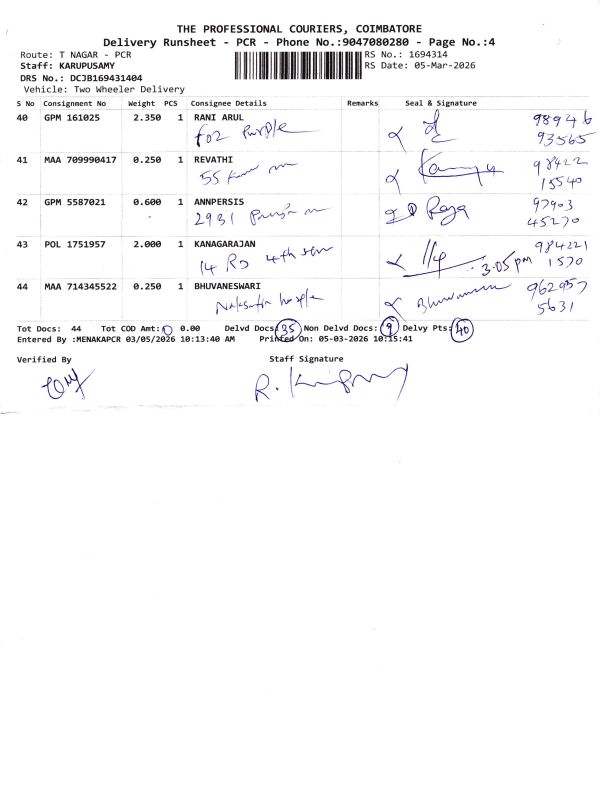 THE PROFESSIONAL COURIERS, COIMBATORE
Delivery Runsheet - PCR - Phone No.:9047080280 - Page No.:4
Route: T NAGAR - PCR RS No.: 1694314
Staff: KARUPUSAMY RS Date: 05-Mar-2026
DRS No.: DCJB169431404
Vehicle: Two Wheeler Delivery
S No Consignment No Weight PCS Consignee Details Remarks Seal & Signature
40 GPM 161025 2.350 1 RANI ARUL 98946
F02 Purple 93565
41 MAA 709990417 0.250 1 REVATHI 98422
55 15540
42 GPM 5587021 0.600 1 ANNPERSIS Raja 97903
2931 45270
43 POL 1751957 2.000 1 KANAGARAJAN 984221
14 RD 4th 3.05 pm 1570
44 MAA 714345522 0.250 1 BHUVANESWARI 962957
5631
Tot Docs: 44 Tot COD Amt: 0.00 Delvd Docs: 35 Non Delvd Docs: 9 Delvy Pts: 40
Entered By :MENAKAPCR 03/05/2026 10:13:40 AM Printed On: 05-03-2026 10:15:41
Verified By Staff Signature